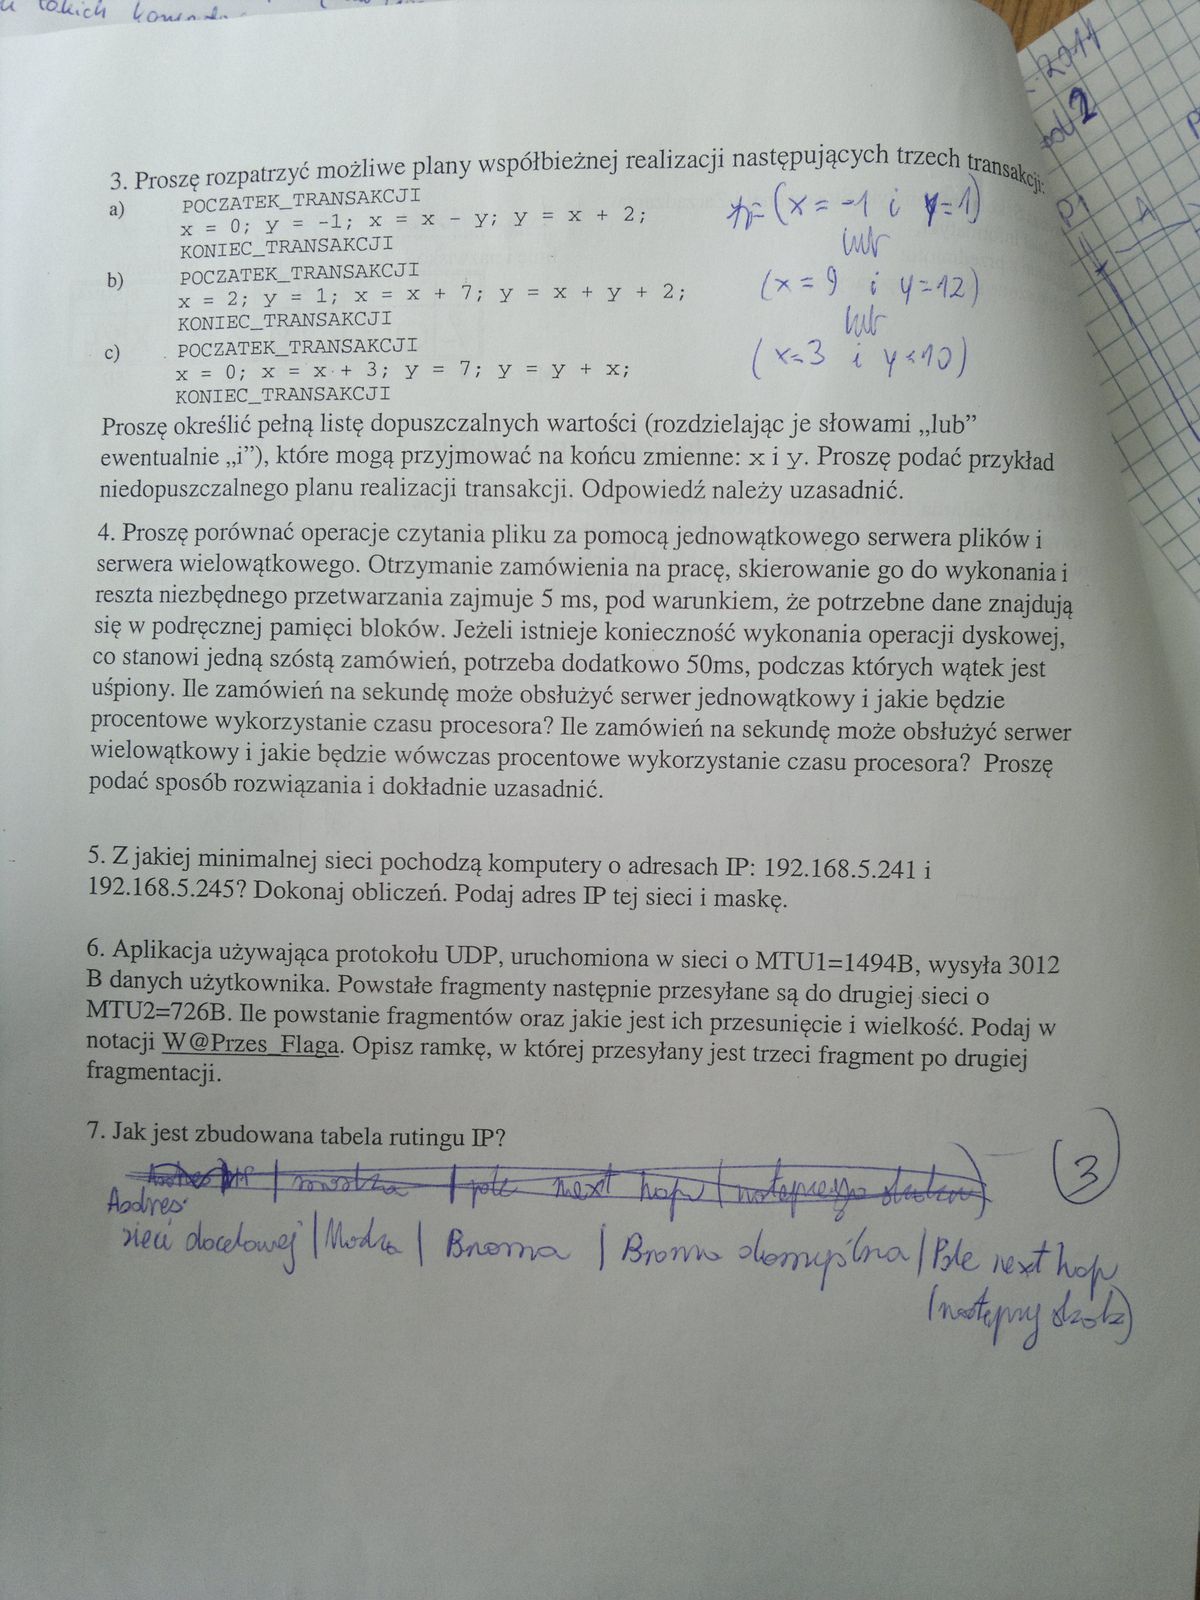 takich
3. Proszę rozpatrzyć możliwe plany współbieżnej realizacji następujących trzech transakcji:
a) POCZATEK_TRANSAKCJI
x = 0; y = -1; x = x - y; y = x + 2;
KONIEC_TRANSAKCJI
(x = -1 i y=1)
lub
b) POCZATEK_TRANSAKCJI
x = 2; y = 1; x = x + 7; y = x + y + 2;
KONIEC_TRANSAKCJI
(x = 9 i y=12)
lub
c) POCZATEK_TRANSAKCJI
x = 0; x = x + 3; y = 7; y = y + x;
KONIEC_TRANSAKCJI
(x=3 i y=10)
Proszę określić pełną listę dopuszczalnych wartości (rozdzielając je słowami „lub”
ewentualnie „i”), które mogą przyjmować na końcu zmienne: x i y. Proszę podać przykład
niedopuszczalnego planu realizacji transakcji. Odpowiedź należy uzasadnić.
4. Proszę porównać operacje czytania pliku za pomocą jednowątkowego serwera plików i
serwera wielowątkowego. Otrzymanie zamówienia na pracę, skierowanie go do wykonania i
reszta niezbędnego przetwarzania zajmuje 5 ms, pod warunkiem, że potrzebne dane znajdują
się w podręcznej pamięci bloków. Jeżeli istnieje konieczność wykonania operacji dyskowej,
co stanowi jedną szóstą zamówień, potrzeba dodatkowo 50ms, podczas których wątek jest
uśpiony. Ile zamówień na sekundę może obsłużyć serwer jednowątkowy i jakie będzie
procentowe wykorzystanie czasu procesora? Ile zamówień na sekundę może obsłużyć serwer
wielowątkowy i jakie będzie wówczas procentowe wykorzystanie czasu procesora? Proszę
podać sposób rozwiązania i dokładnie uzasadnić.
5. Z jakiej minimalnej sieci pochodzą komputery o adresach IP: 192.168.5.241 i
192.168.5.245? Dokonaj obliczeń. Podaj adres IP tej sieci i maskę.
6. Aplikacja używająca protokołu UDP, uruchomiona w sieci o MTU1=1494B, wysyła 3012
B danych użytkownika. Powstałe fragmenty następnie przesyłane są do drugiej sieci o
MTU2=726B. Ile powstanie fragmentów oraz jakie jest ich przesunięcie i wielkość. Podaj w
notacji W@Przes_Flaga. Opisz ramkę, w której przesyłany jest trzeci fragment po drugiej
fragmentacji.
7. Jak jest zbudowana tabela rutingu IP?
3
Adres IP | maska | pole next hop (następnego skoku)
Aadres
sieci docelowej | Maska | Brama | Brama domyślna | Pole next hop
(następny skok)
2011
2
P1
A